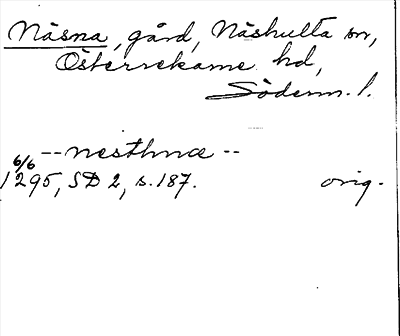 Näsna, gård, Näshulta sn,
Österrekarne hd,
Söderm. l.
-- nesthnæ --
6/6
1295, SD 2, s. 187. orig.